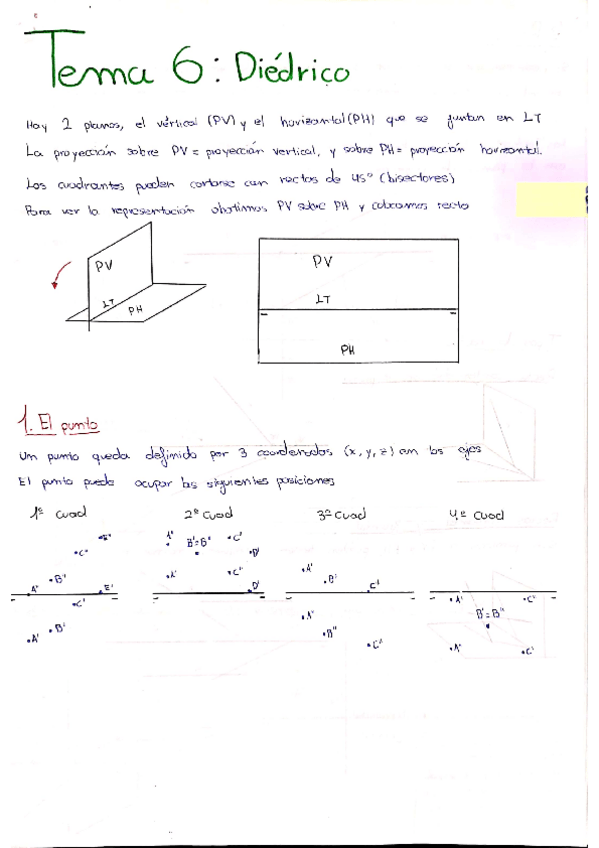 Tema 6: Diédrico
Hay 2 planos, el vertical (PV) y el horizontal (PH) que se juntan en LT
La proyección sobre PV = proyección vertical, y sobre PH = proyección horizontal.
Los cuadrantes pueden cortarse con rectas de 45° (bisectores)
Para ver la representución abatimos PV sobre PH y colocamos recto
PV
LT
PH
PV
LT
PH
1. El punto
Un punto queda definido por 3 coordenadas (x, y, z) en los ejes
El punto puede ocupar las siguientes posiciones
1º cuad 2º cuad 3º cuad 4º cuad
E" A" B'=B" C" D"
C"
B" A' C' A' B' C' A" C"
A" E' D' B'=B"
C' A" B" C"
A' B' A' C'